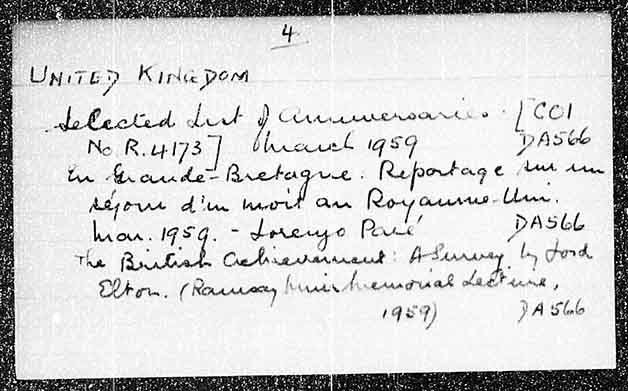 4
UNITED KINGDOM
Selected List of Anniversaries. [COI
No R.4173] March 1959 DA566
En Grande-Bretagne. Reportage sur un
séjour d'un mois au Royaume-Uni.
Mar. 1959. - Lorenzo Paré DA566
The British Achievement: A Survey by Lord
Elton. (Ramsay Muir Memorial Lecture,
1959) DA566